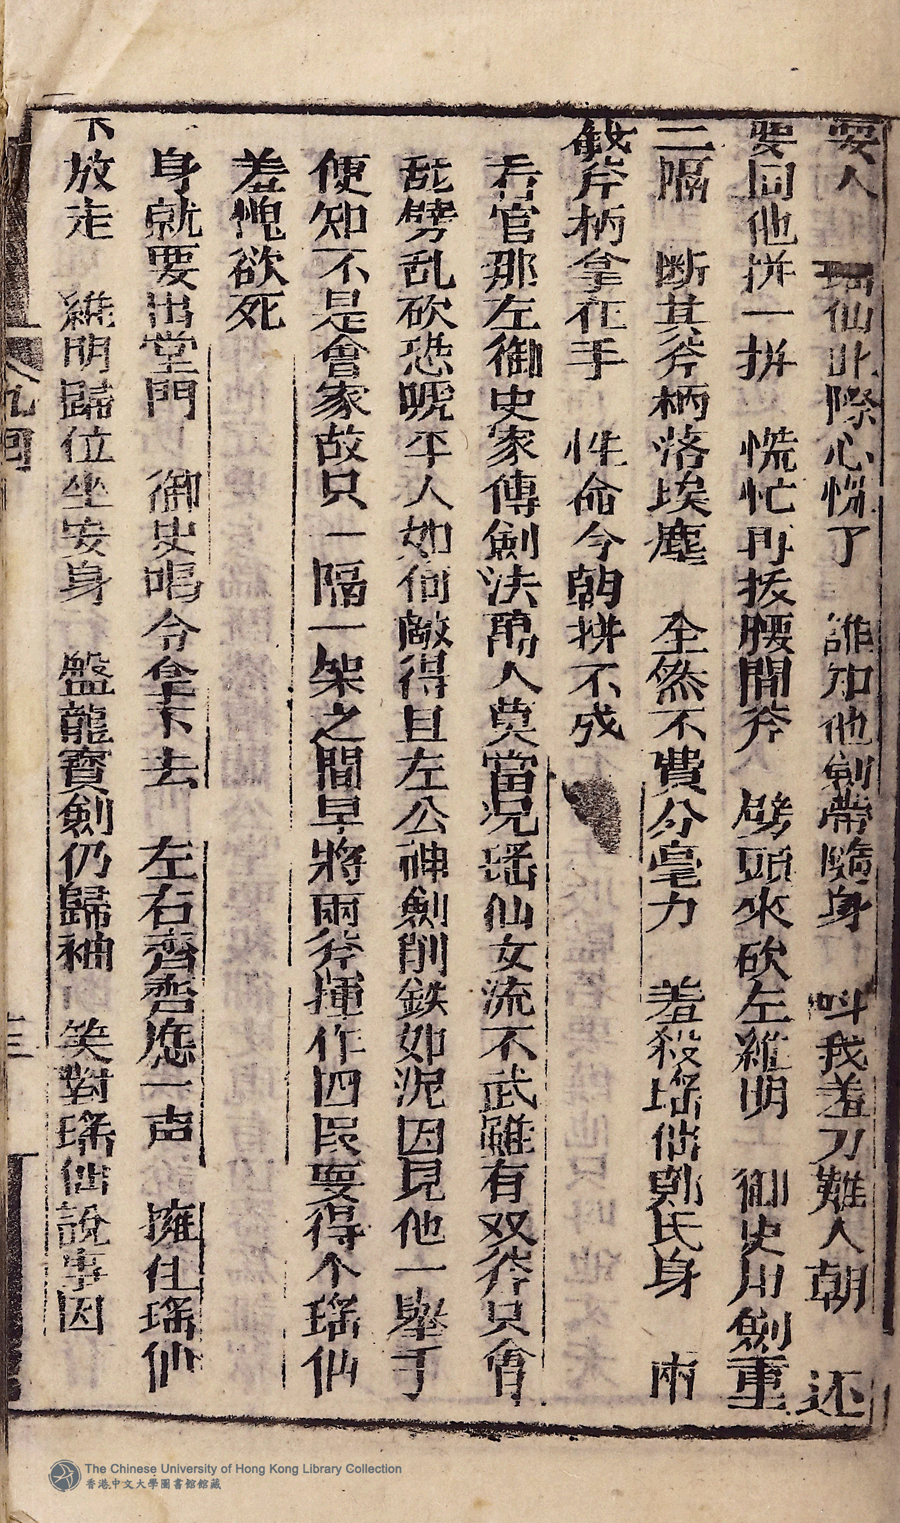 耍人　瑶仙此際心慌了　誰知他劍帶隨身　叫我羞刀難人朝　还
要同他拼一拼　慌忙再拔腰間斧　劈頭來砍左維明　御史用劍重
二隔　断其斧柄落埃塵　全然不費分毫力　羞殺瑶仙鄭氏身　兩
斧柄拿在手　性命今朝拼不成
看官那左御史家傳劍法萬人莫當况瑶仙女流不武雖有双斧只會
乱劈乱砍恐唬平人如何敵得且左公神劍削鉄如泥因見他一舉手
便知不是會家故只一隔一架之間早將兩斧揮作四段耍得个瑶仙
羞愧欲死
身就要出堂門　御史喝令拿下去　左右齊齊應一声　擁住瑶仙
不放走　維明歸位坐安身　盤龍寶劍仍歸袖　笑對瑶仙說事因
九回
The Chinese University of Hong Kong Library Collection
香港中文大學圖書館館藏